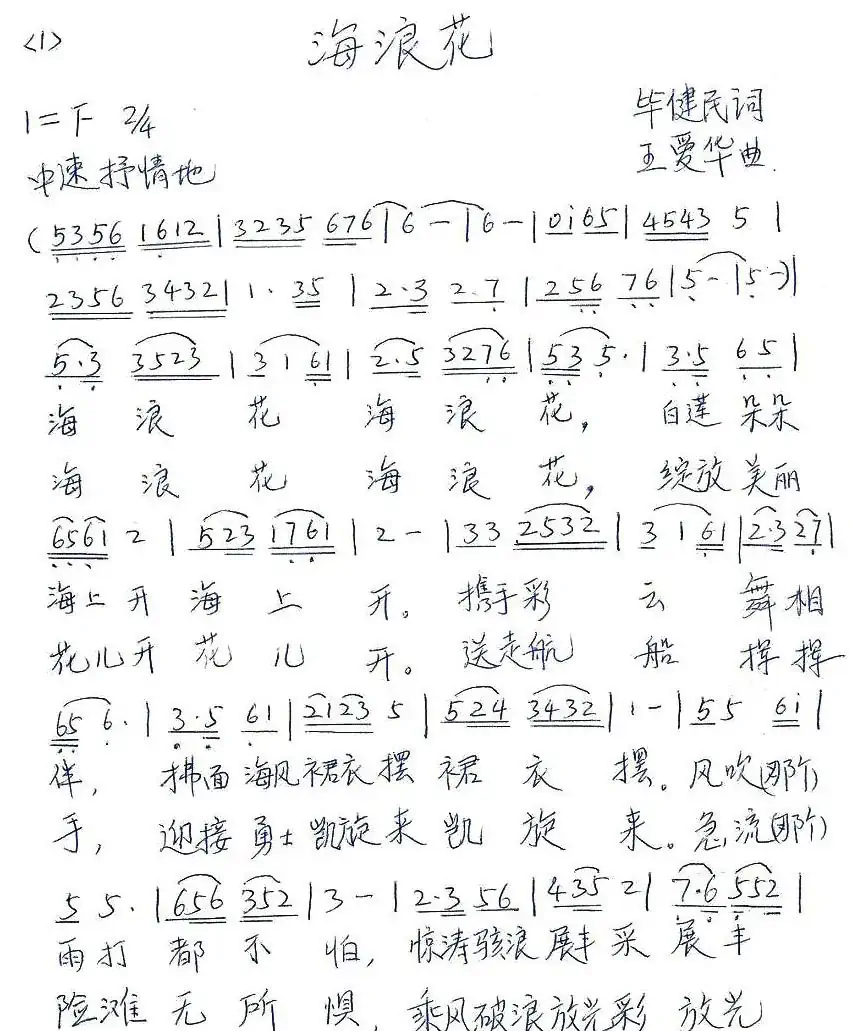 <1>
海浪花
1=F 2/4
毕健民词
中速抒情地
王爱华曲.
(5356 1612|3235 676|6-|6-|0i65|4543 5|
2356 3432|1· 35|2·3 2·7|256 76|5-|5-)|
5·3 3523|3 1 61|2·5 3276|53 5·|3·5 65|
海 浪 花 海 浪 花, 白莲 朵朵
海 浪 花 海 浪 花, 绽放 美丽
6561 2|523 1761|2-|33 2532|3 1 61|2·3 27|
海上开 海 上 开。 携手彩 云 舞相
花儿开 花 儿 开。 送走航 船 挥挥
65 6·|3·5 61|2123 5|524 3432|1-|55 6i|
伴, 拂面 海风 裙衣摆 裙 衣 摆。 风吹(那个)
手, 迎接 勇士 凯旋来 凯 旋 来。 急流(那个)
5 5·|656 352|3-|2·3 56|435 2|7·6 552|
雨打 都 不 怕, 惊涛骇浪 展丰采 展 丰
险滩 无 所 惧, 乘风破浪 放光彩 放 光